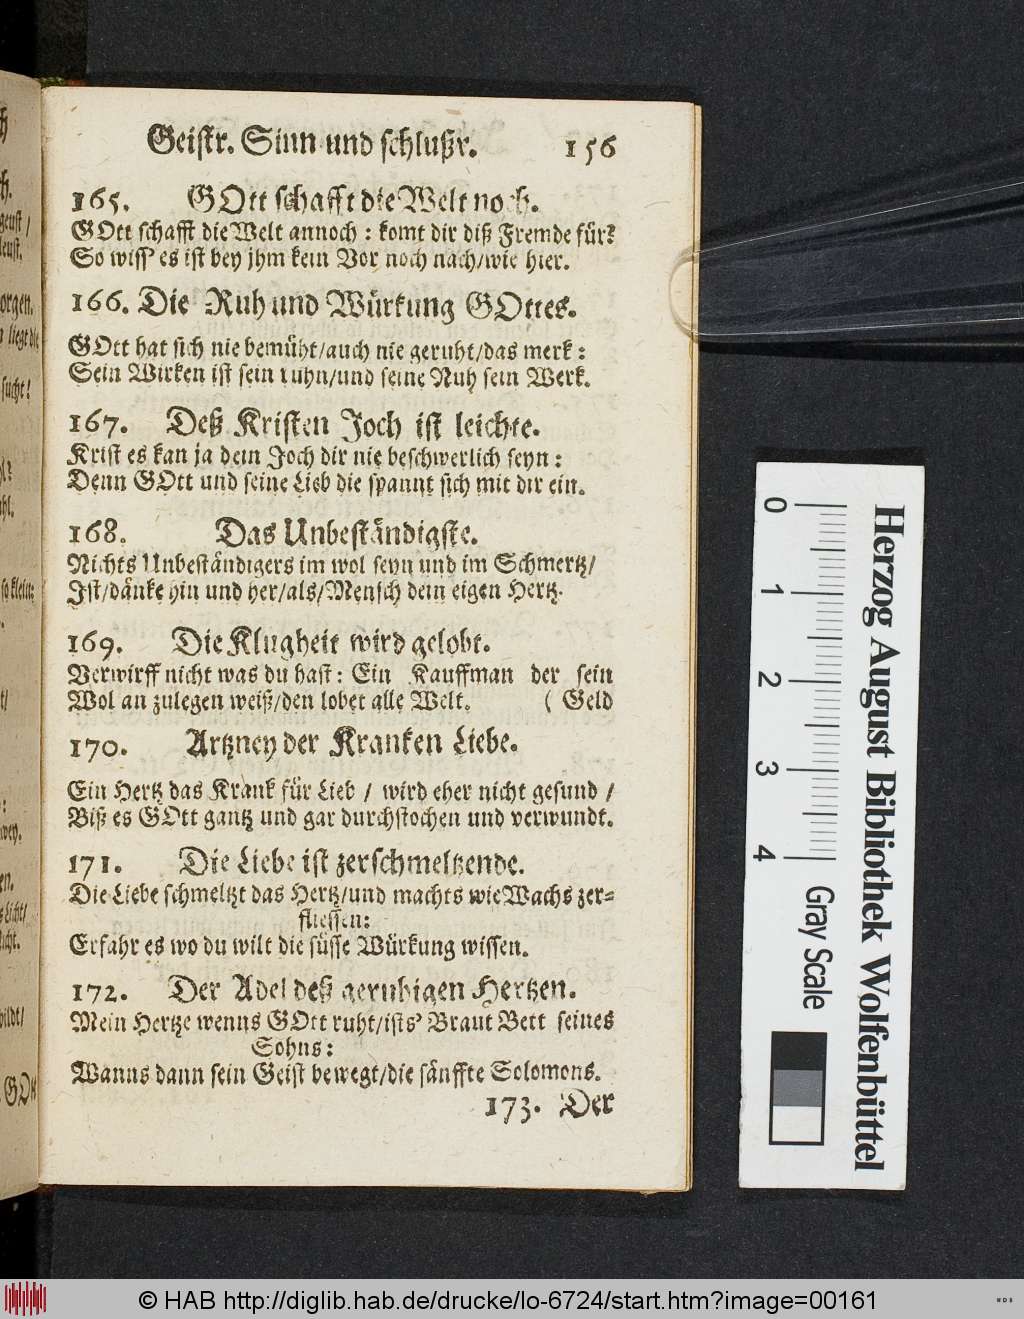 Geistr. Sinn und schlußr. 156
165. GOtt schafft die Welt noch.
GOtt schafft die Welt annoch: komt dir diß Fremde für?
So wiss' es ist bey jhm kein Vor noch nach/wie hier.
166. Die Ruh und Würkung GOttes.
GOtt hat sich nie bemüht/auch nie geruht/das merk:
Sein Wirken ist sein ruhn/und seine Ruh sein Werk.
167. Deß Kristen Joch ist leichte.
Krist es kan ja dein Joch dir nie beschwerlich seyn:
Denn GOtt und seine Lieb die spannt sich mit dir ein.
168. Das Unbeständigste.
Nichts Unbeständigers im wol seyn und im Schmertz/
Ist/dänke hin und her/als/Mensch dein eigen Hertz.
169. Die Klugheit wird gelobt.
Verwirff nicht was du hast: Ein Kauffman der sein
Wol an zulegen weiß/den lobet alle Welt. ( Geld
170. Artzney der Kranken Liebe.
Ein Hertz das Krank für Lieb / wird eher nicht gesund /
Biß es GOtt gantz und gar durchstochen und verwundt.
171. Die Liebe ist zerschmeltzende.
Die Liebe schmeltzt das Hertz/und machts wie Wachs zer-
fliessen:
Erfahr es wo du wilt die süsse Würkung wissen.
172. Der Adel deß geruhigen Hertzen.
Mein Hertze wenns GOtt ruht/ists' Braut Bett seines
Sohns:
Wanns dann sein Geist bewegt/die sänffte Solomons.
173. Der
0 1 2 3 4
Gray Scale
Herzog August Bibliothek Wolfenbüttel
© HAB http://diglib.hab.de/drucke/lo-6724/start.htm?image=00161